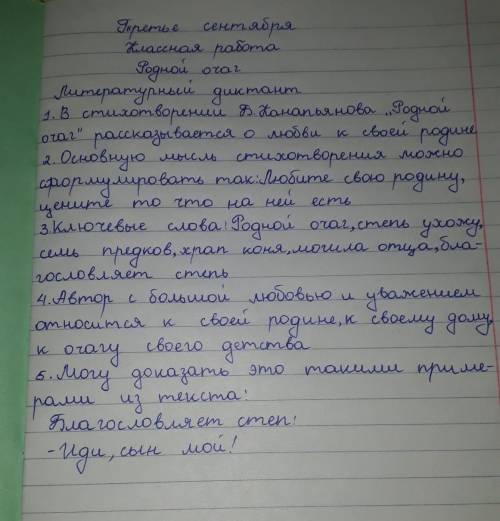 Третье сентября
Классная работа
Родной очаг
Литературный диктант
1. В стихотворении Б. Канапьянова „Родной
очаг" рассказывается о любви к своей родине
2. Основную мысль стихотворения можно
сформулировать так: Любите свою родину,
цените то что на ней есть
3. Ключевые слова: Родной очаг, степь ухожу,
семь предков, храп коня, могила отца, бла-
гословляет степь
4. Автор с большой любовью и уважением
относится к своей родине, к своему дому,
к очагу своего детства
5. Могу доказать это такими приме-
рами из текста:
Благословляет степ:
- Иди, сын мой!